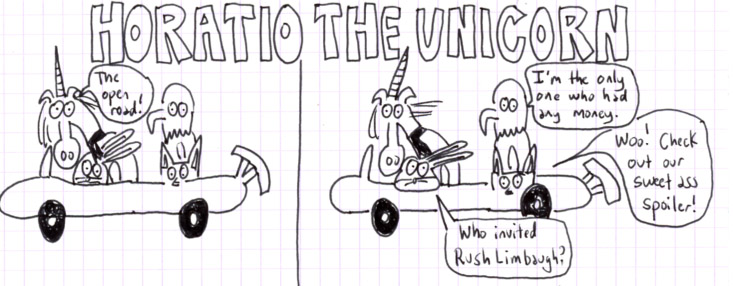 HORATIO THE UNICORN
The
open
road!
I'm the only
one who had
any money.
Woo! Check
out our
sweet ass
spoiler!
Who invited
Rush Limbaugh?